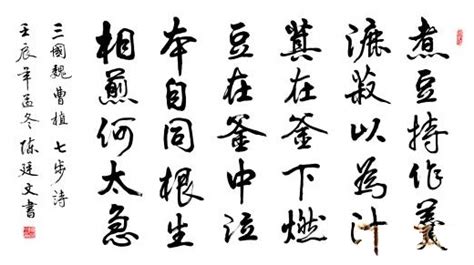 煮豆持作羹
漉菽以為汁
萁在釜下燃
豆在釜中泣
本自同根生
相煎何太急
三國魏曹植 七步詩
壬辰年孟冬陳廷文書